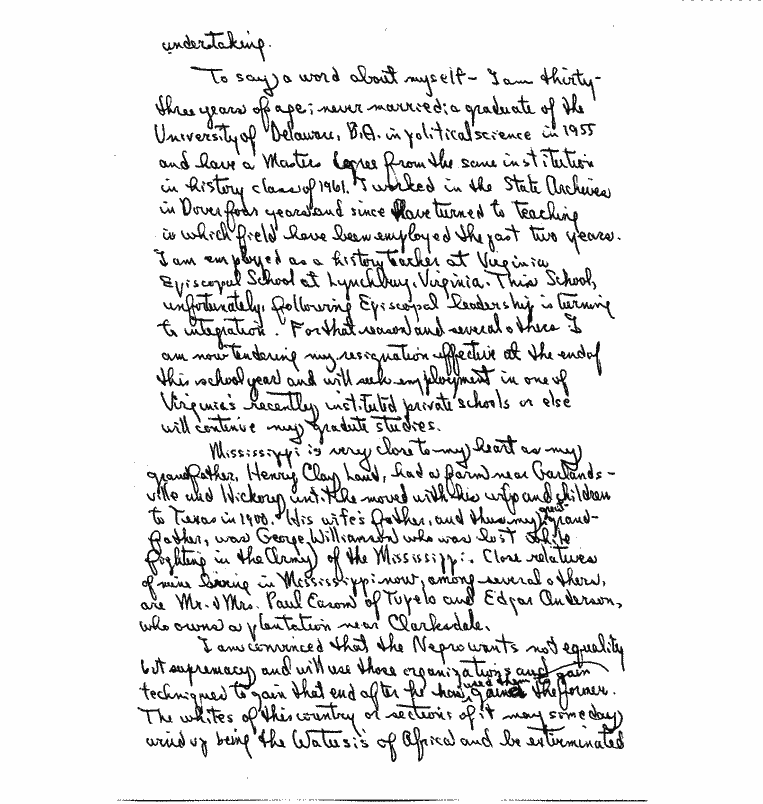 undertaking.
To say a word about myself - I am thirty-
three years of age; never married; a graduate of the
University of Delaware, B.A. in political science in 1955
and have a Masters degree from the same institution
in history class of 1961. I worked in the State Archives
in Dover four years and since have turned to teaching
in which field have been employed the past two years.
I am employed as a history teacher at Virginia
Episcopal School at Lynchburg, Virginia. This School,
unfortunately, following Episcopal leadership is turning
to integration. For that reason and several others I
am now tendering my resignation effective at the end of
this school year and will seek employment in one of
Virginia's recently instituted private schools or else
will continue my graduate studies.
Mississippi is very close to my heart as my
grandfather, Henry Clay Land, had a farm near Garlands-
ville and Hickory until he moved with his wife and children
to Texas in 1900. His wife's father, and thus my great-grand-
father, was George Williamson who was lost while
fighting in the Army of the Mississippi. Close relatives
of mine living in Mississippi now, among several others,
are Mr. & Mrs. Paul Eason of Tupelo and Edgar Anderson,
who owns a plantation near Clarksdale.
I am convinced that the Negro wants not equality
but supremacy and will use those organizations and
techniques to gain that end after he has used them to gain the former.
The whites of this country or sections of it may someday
wind up being the Watusis of Africa and be exterminated